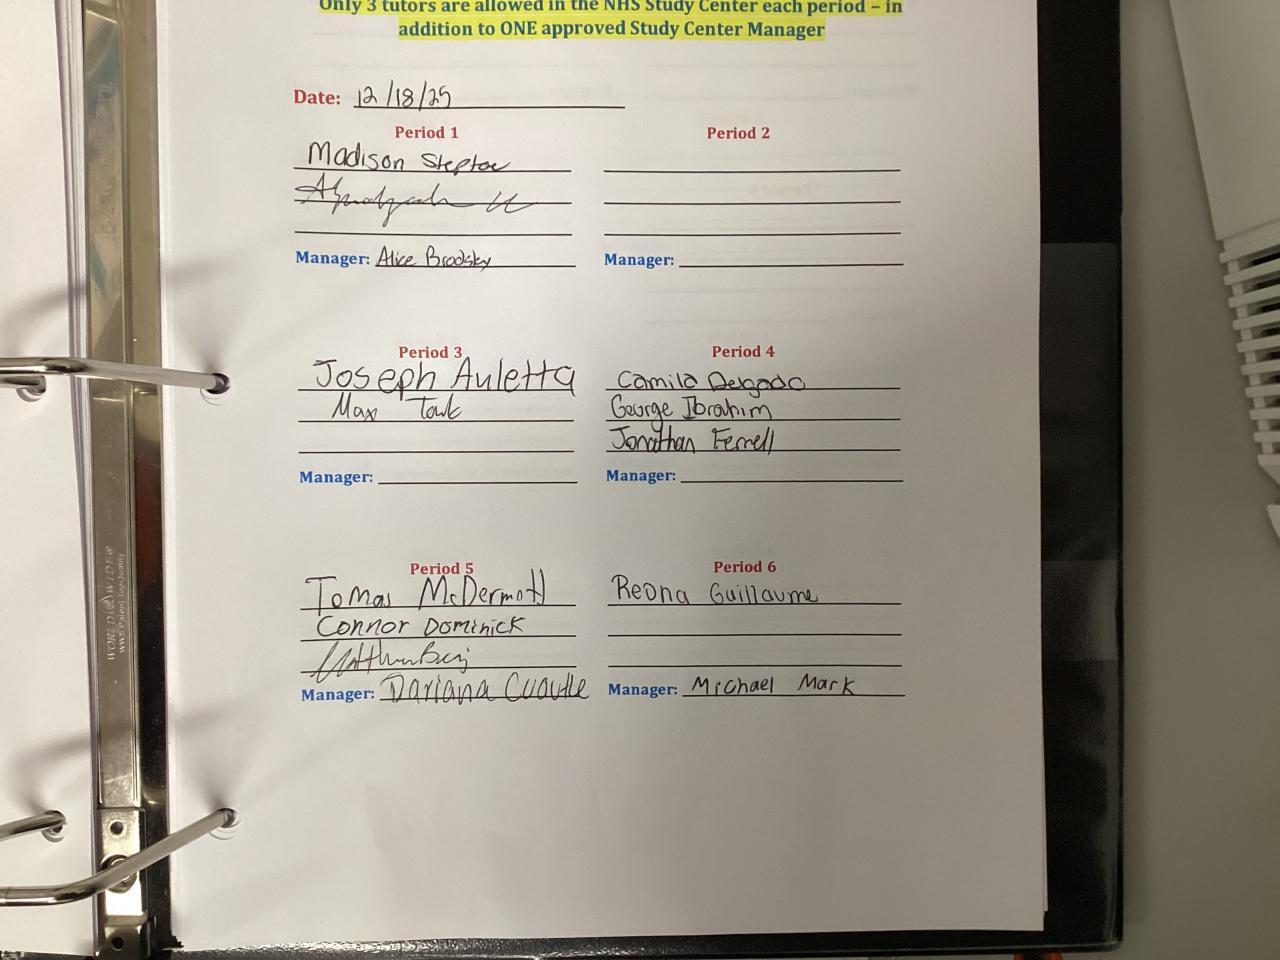 Only 3 tutors are allowed in the NHS Study Center each period – in
addition to ONE approved Study Center Manager
Date: 12/18/25
Period 1
Madison Steptoe
Manager: Alice Brodsky
Period 2
Manager:
Period 3
Joseph Auletta
Max
Manager:
Period 4
Camila Delgado
George Ibrahim
Jonathan Ferrell
Manager:
Period 5
Tomas McDermott
Connor Dominick
Manager: Dariana Cuautle
Period 6
Reona Guillaume
Manager: Michael Mark